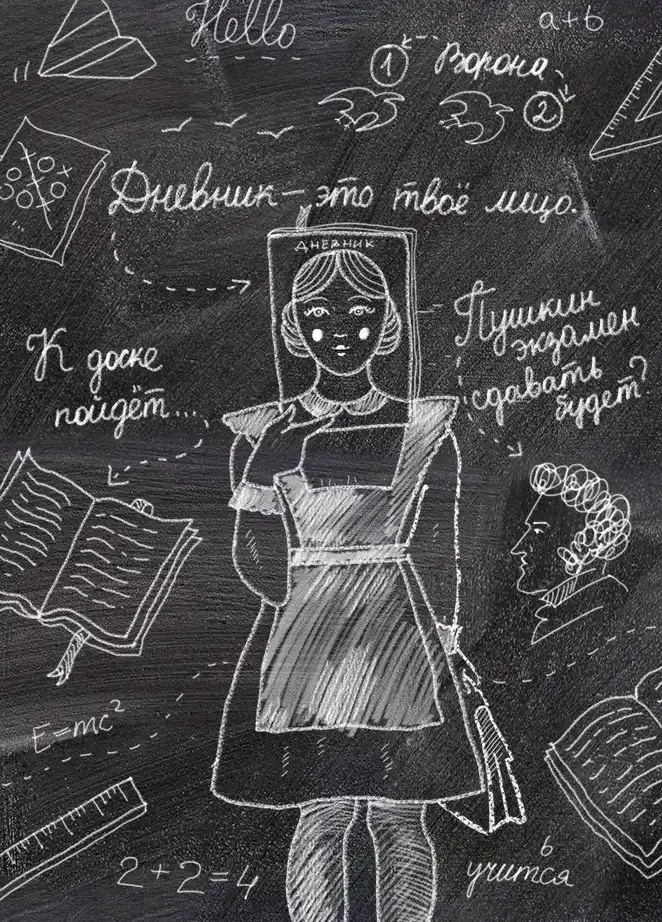 Hello
a+b
1
Ворона
2
Дневник – это твоё лицо.
ДНЕВНИК
К доске
пойдёт...
Пушкин
экзамен
сдавать
будет?
E=mc²
2+2=4
ь
учится